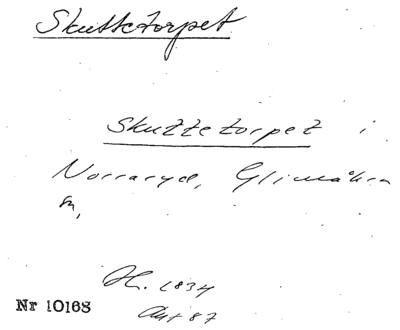 Skuttetorpet
Skuttetorpet i
Norraryd, Glimåkra
sn,
H. 1834
Nr 10168
Avt 87